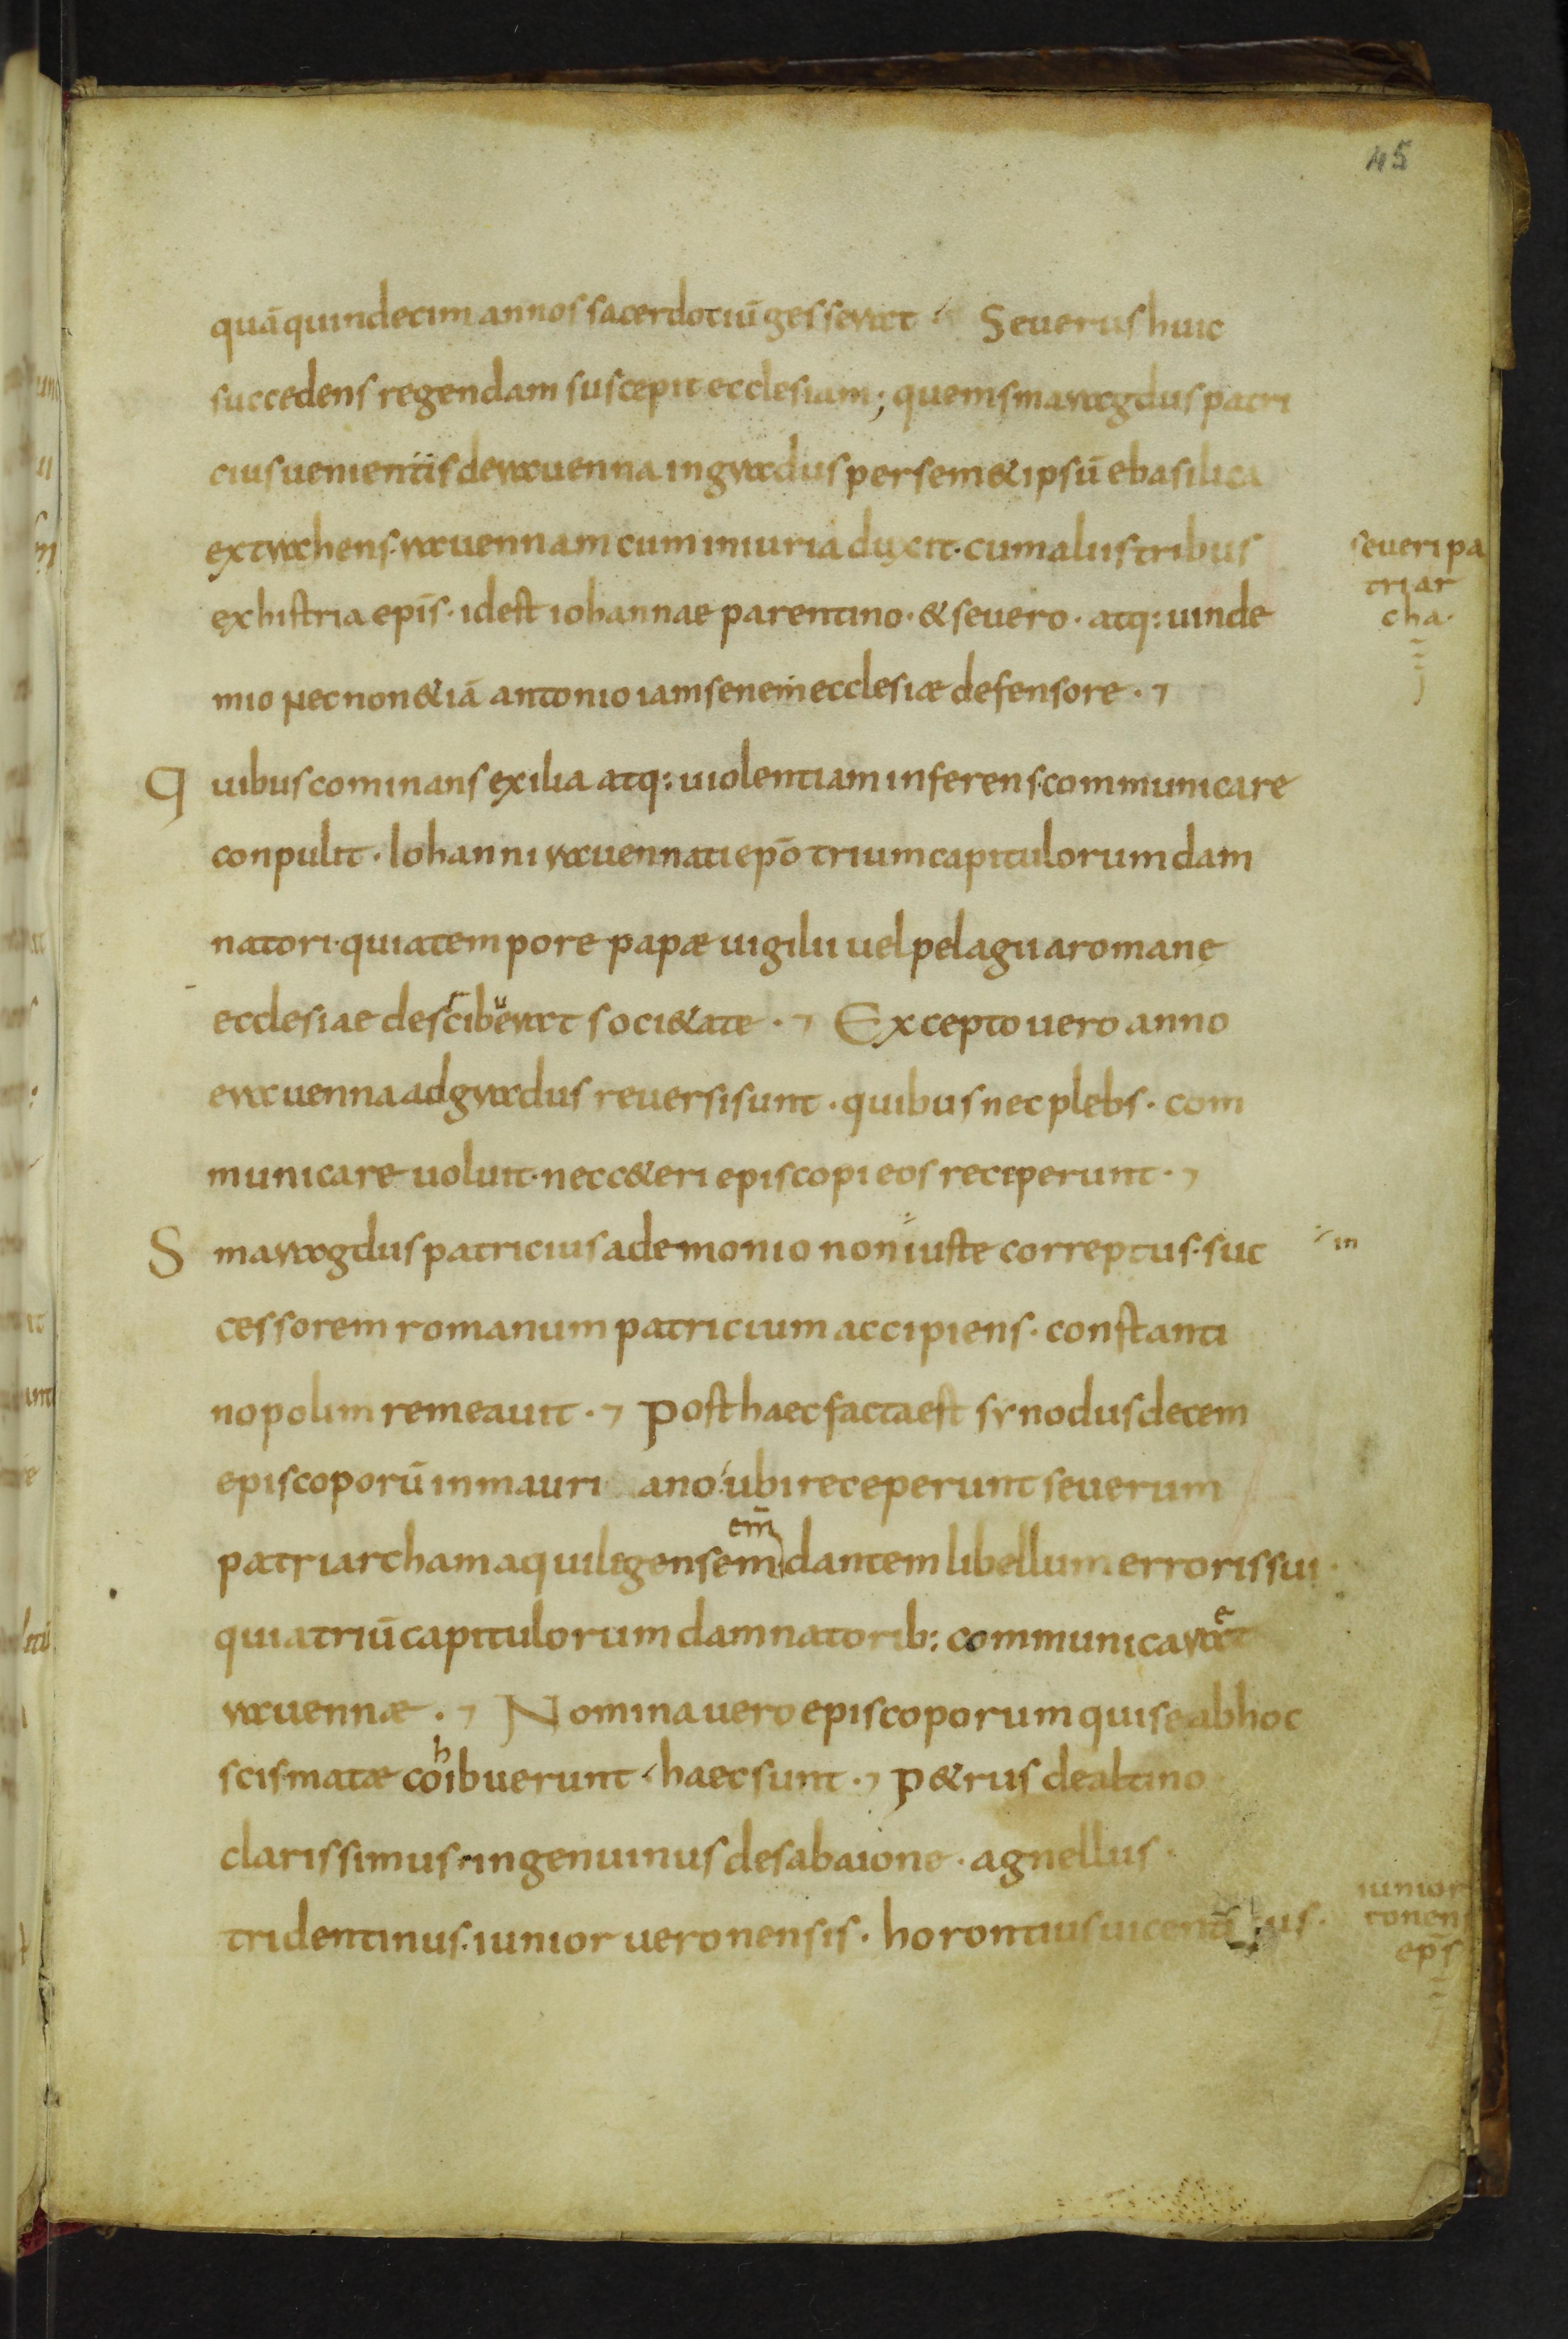 45
quā quindecim annos sacerdotiū gesserat · Severus huic
succedens regendam suscepit ecclesiam; quem smaragdus patri
cius uenientis de rauenna in gradus per sem & ipsū e basilica
extrahens· rauennam cum iniuria duxit· cum aliis tribus
ex histria epīs· id est iohannae parentino· & seuero· atq: uinde
mio necnon &iā antonio iam senem ecclesiæ defensore·
Quibus cominans exilia atq: uiolentiam inferens· communicare
conpulit· Iohanni rauennati epō trium capitulorum dam
natori· qui a tempore papæ uigilii uel pelagii a romanę
ecclesiae descibuerat soci&ate· Excepto uero anno
e rauenna ad gradus reuersi sunt· quibus nec plebs· com
municare uoluit· nec c&eri episcopi eos receperunt·
Smaragdus patricius a demonio non iuste correptus· suc
cessorem romanum patricium accipiens· constanti
nopolim remeauit· Post haec facta est synodus decem
episcoporū in mauri ano· ubi receperunt seuerum
em̄
patriarcham aquiligensem dantem libellum erroris sui·
quia triū capitulorum damnatorib: communicaret
rauennæ· Nomina uero episcoporum qui se ab hoc
scismatæ cohibuerunt· haec sunt· P&rus de altino
clarissimus· ingenuinus de sabaione· agnellus
tridentinus· iunior ueronensis· horontius
seueri pa
triar
cha·
in
iunior
eps̄